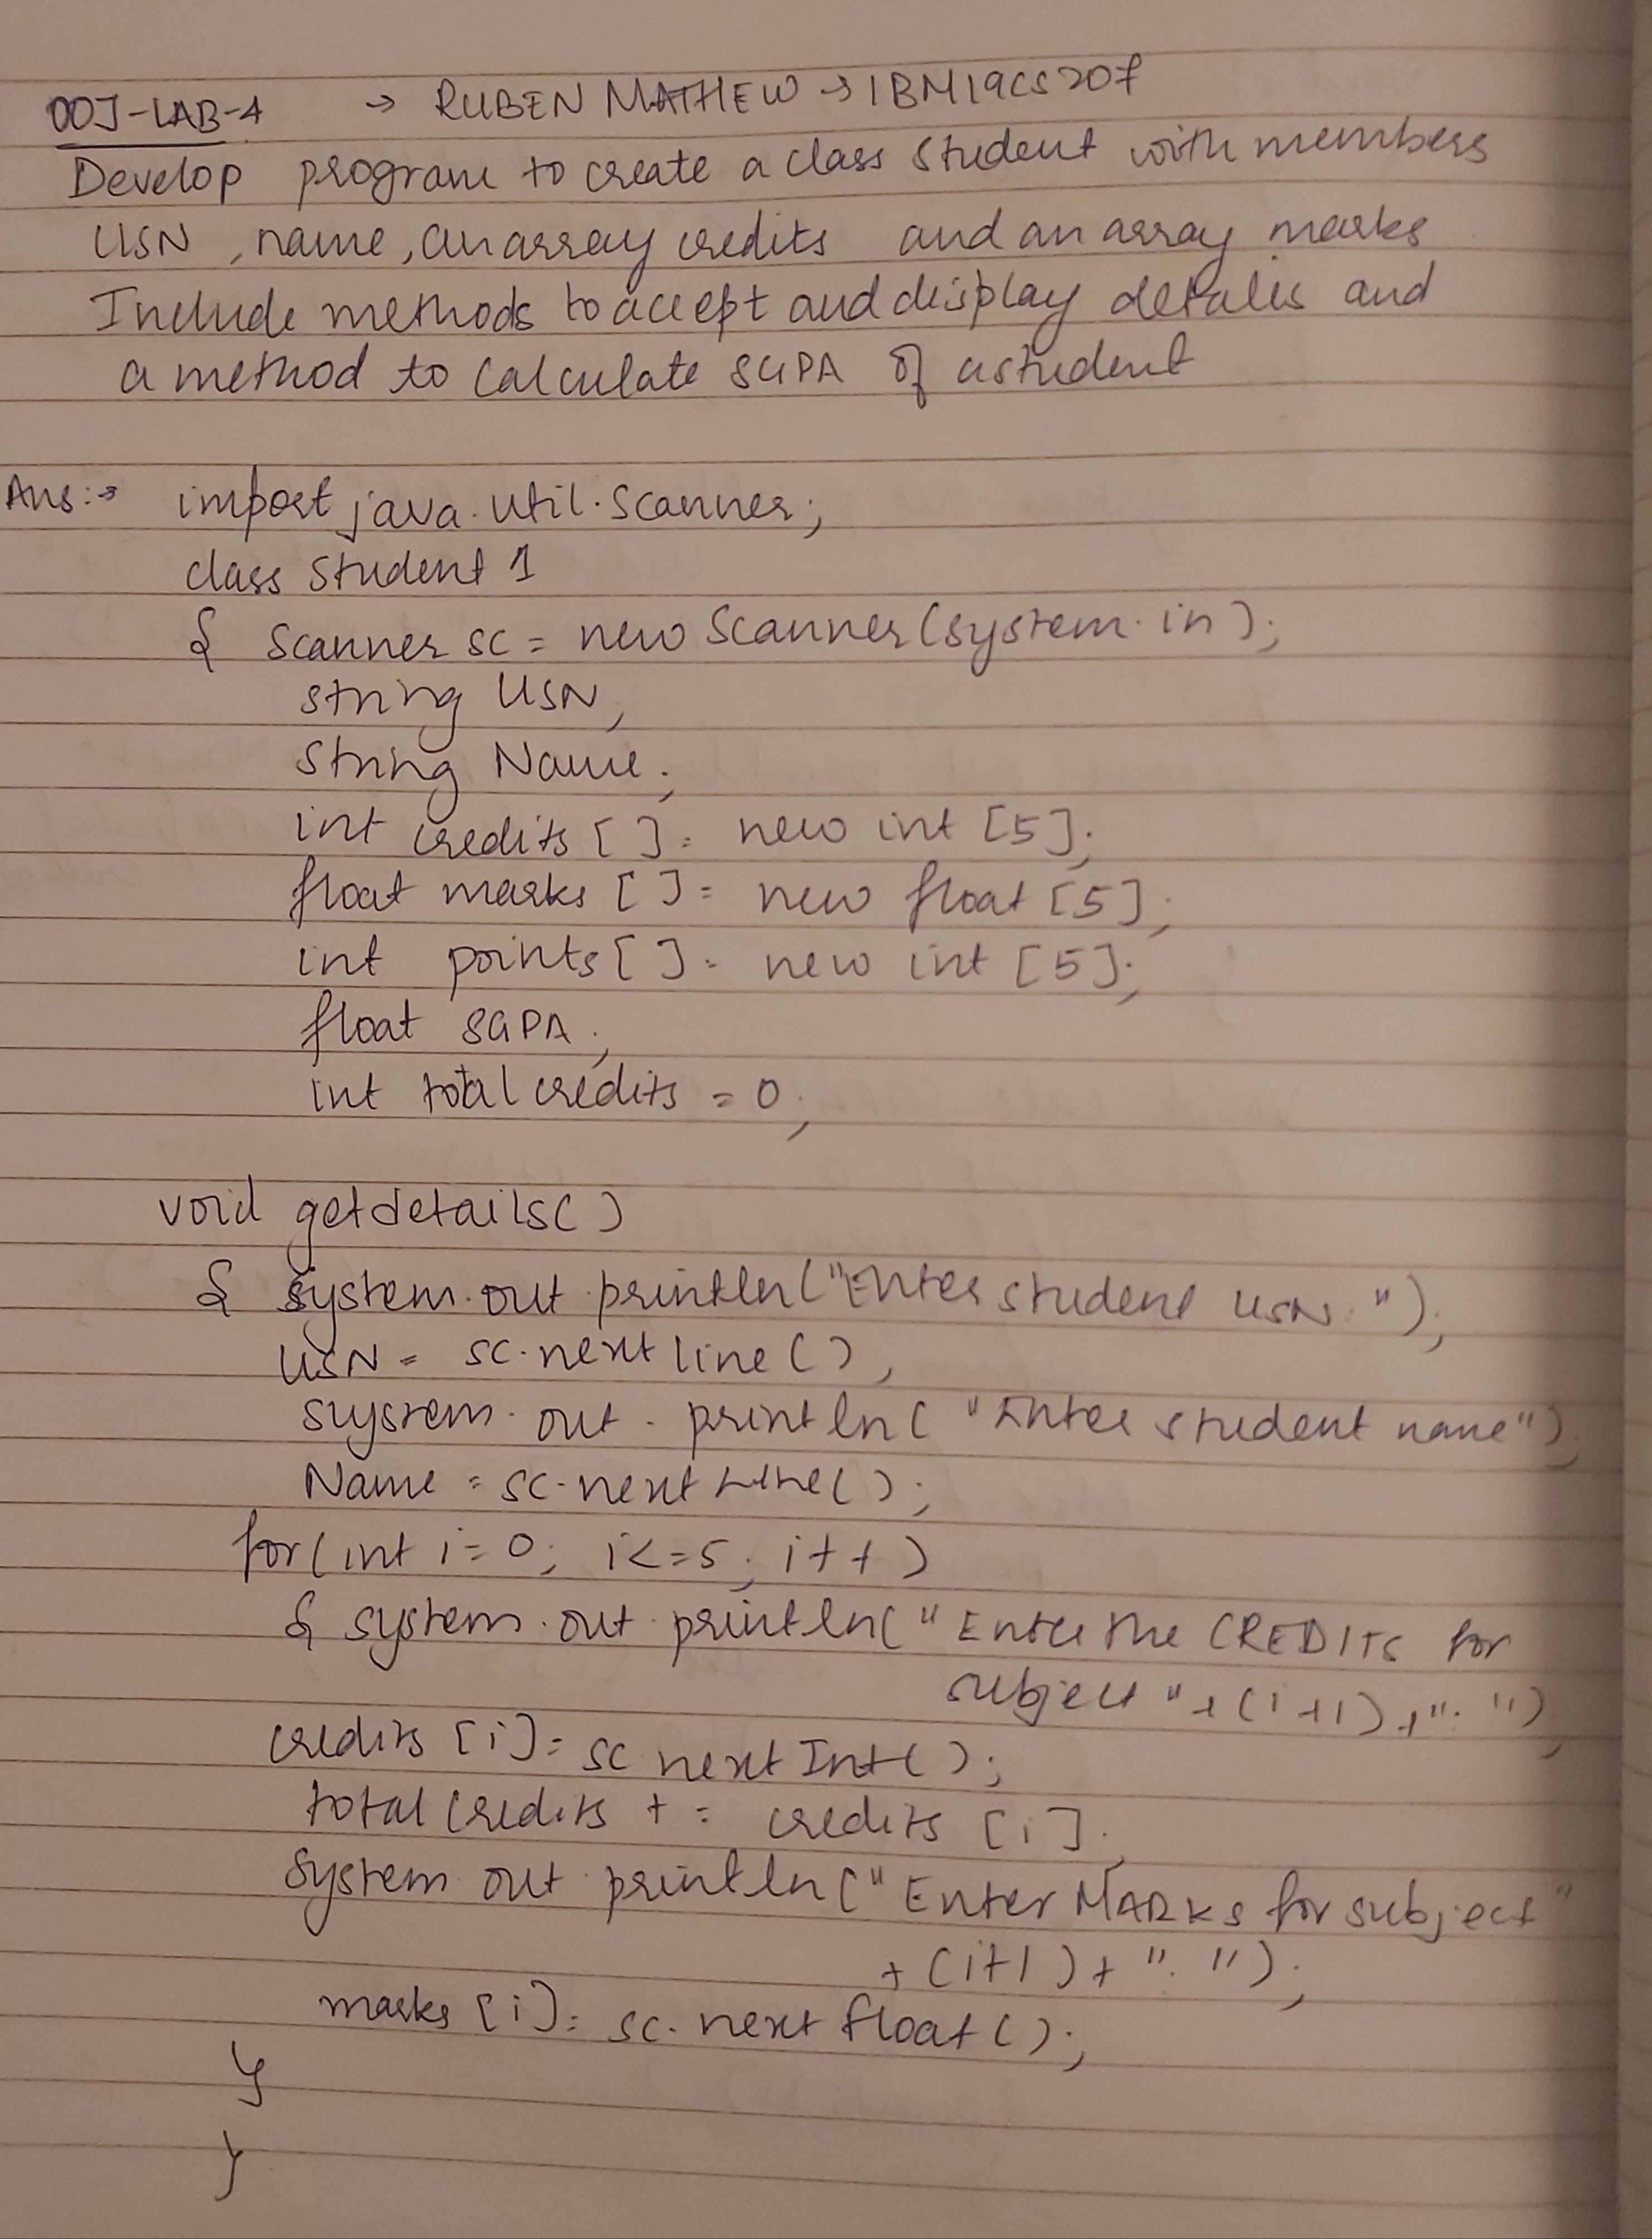 OOJ-LAB-4 → RUBEN MATHEW → 1BM19CS207
Develop program to create a class Student with members
USN, name, an array credits and an array marks
Include methods to accept and display details and
a method to calculate SGPA of a student
Ans:→ import java.util.Scanner;
class Student 1
{ Scanner sc = new Scanner(system.in);
string USN;
String Name;
int credits [ ] = new int [5];
float marks [ ] = new float [5];
int points [ ] = new int [5];
float SGPA;
int total credits = 0;
void getdetails()
{ system.out.println("Enter student USN. ");
USN = sc.next line();
system.out.println( "Enter student name");
Name = sc.next Line();
for(int i=0; i<=5; i++)
{ system.out.println(" Enter the CREDITS for
subject "+(i+1)+": ");
credits [i] = sc next Int();
total credits += credits [i];
System out println(" Enter MARKS for subject "
+ (i+1) + ": ");
marks [i] = sc.next float();
}
}